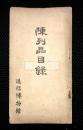 陳列品目錄
遼陽博物館